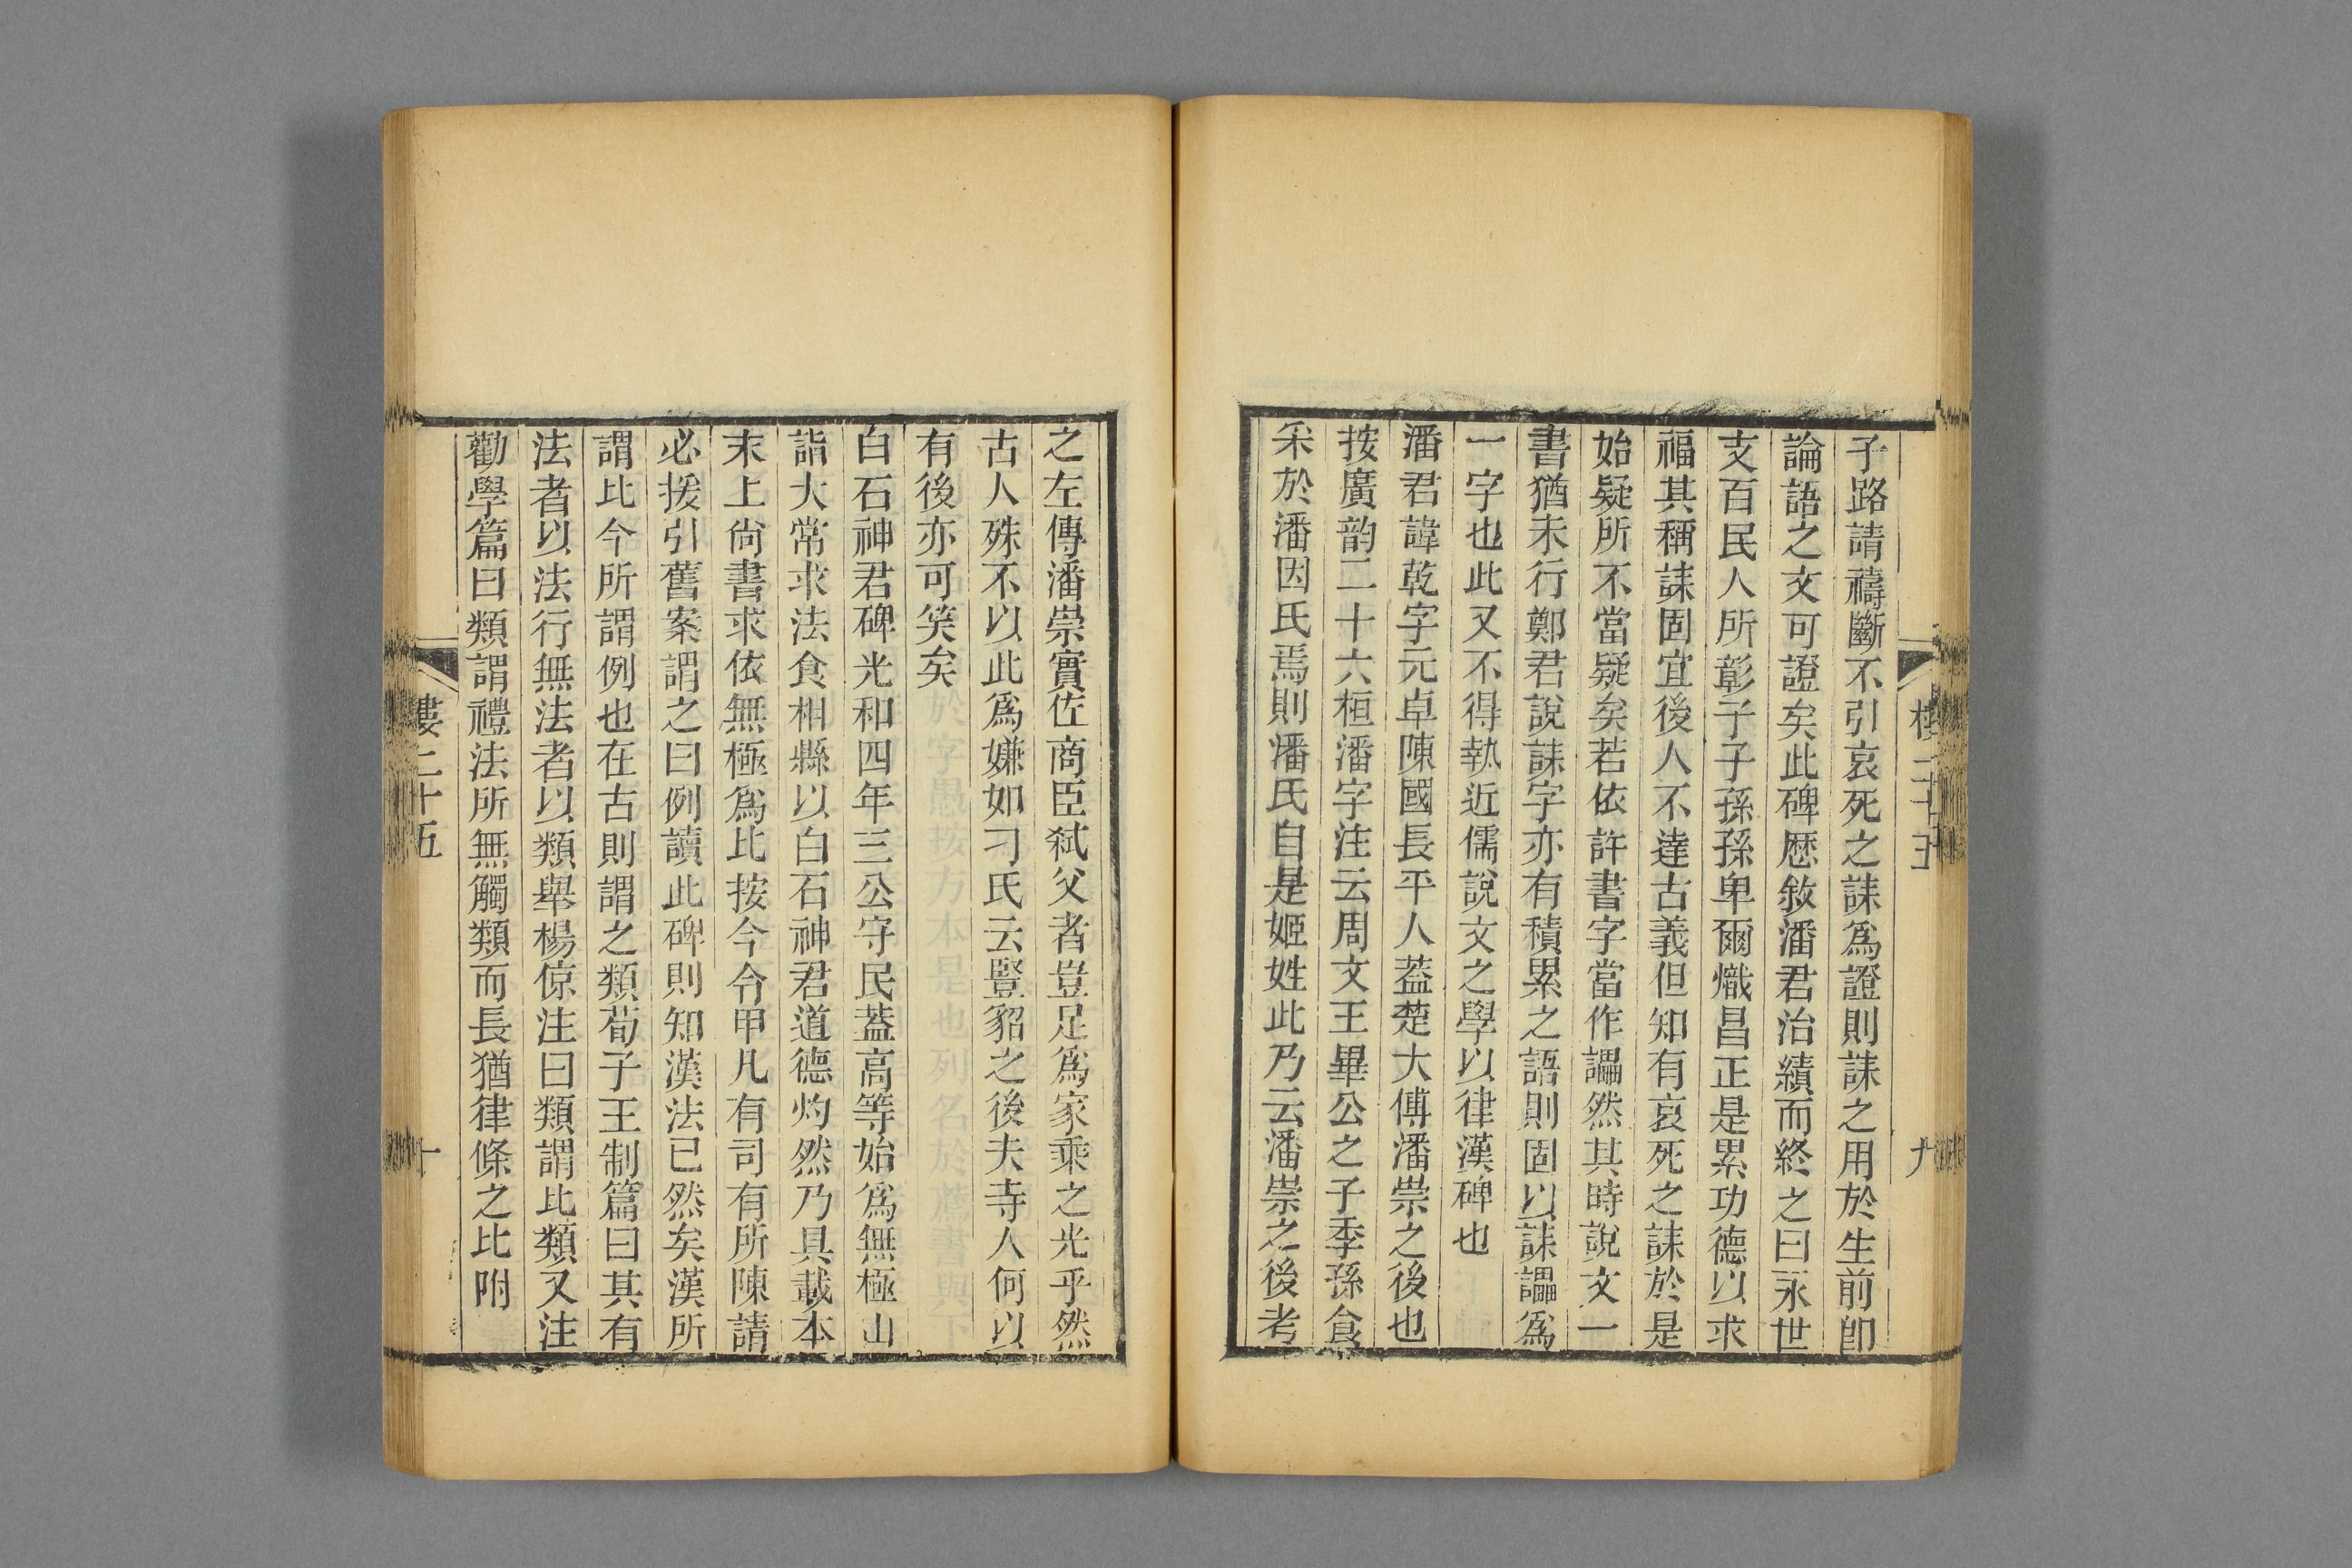 子路請禱斷不引哀死之誄爲證則誄之用於生前卽
論語之文可證矣此碑歷敘潘君治績而終之曰永世
支百民人所彰子子孫孫卑爾熾昌正是累功德以求
福其稱誄固宜後人不達古義但知有哀死之誄於是
始疑所不當疑矣若依許書字當作讄然其時說文一
書猶未行鄭君說誄字亦有積累之語則固以誄讄爲
一字也此又不得執近儒說文之學以律漢碑也
潘君諱乾字元卓陳國長平人葢楚大傅潘崇之後也
按廣韵二十六桓潘字注云周文王畢公之子季孫食
采於潘因氏焉則潘氏自是姬姓此乃云潘崇之後考
二十五
九
之左傳潘崇實佐商臣弑父者豈足爲家乘之光乎然
古人殊不以此爲嫌如刁氏云豎貂之後夫寺人何以
有後亦可笑矣
白石神君碑光和四年三公守民葢高等始爲無極山
詣大常求法食相縣以白石神君道德灼然乃具載本
末上尙書求依無極爲比按今令甲凡有司有所陳請
必援引舊案謂之曰例讀此碑則知漢法已然矣漢所
謂比今所謂例也在古則謂之類荀子王制篇曰其有
法者以法行無法者以類舉楊倞注曰類謂比類又注
勸學篇曰類謂禮法所無觸類而長猶律條之比附
二十五
十